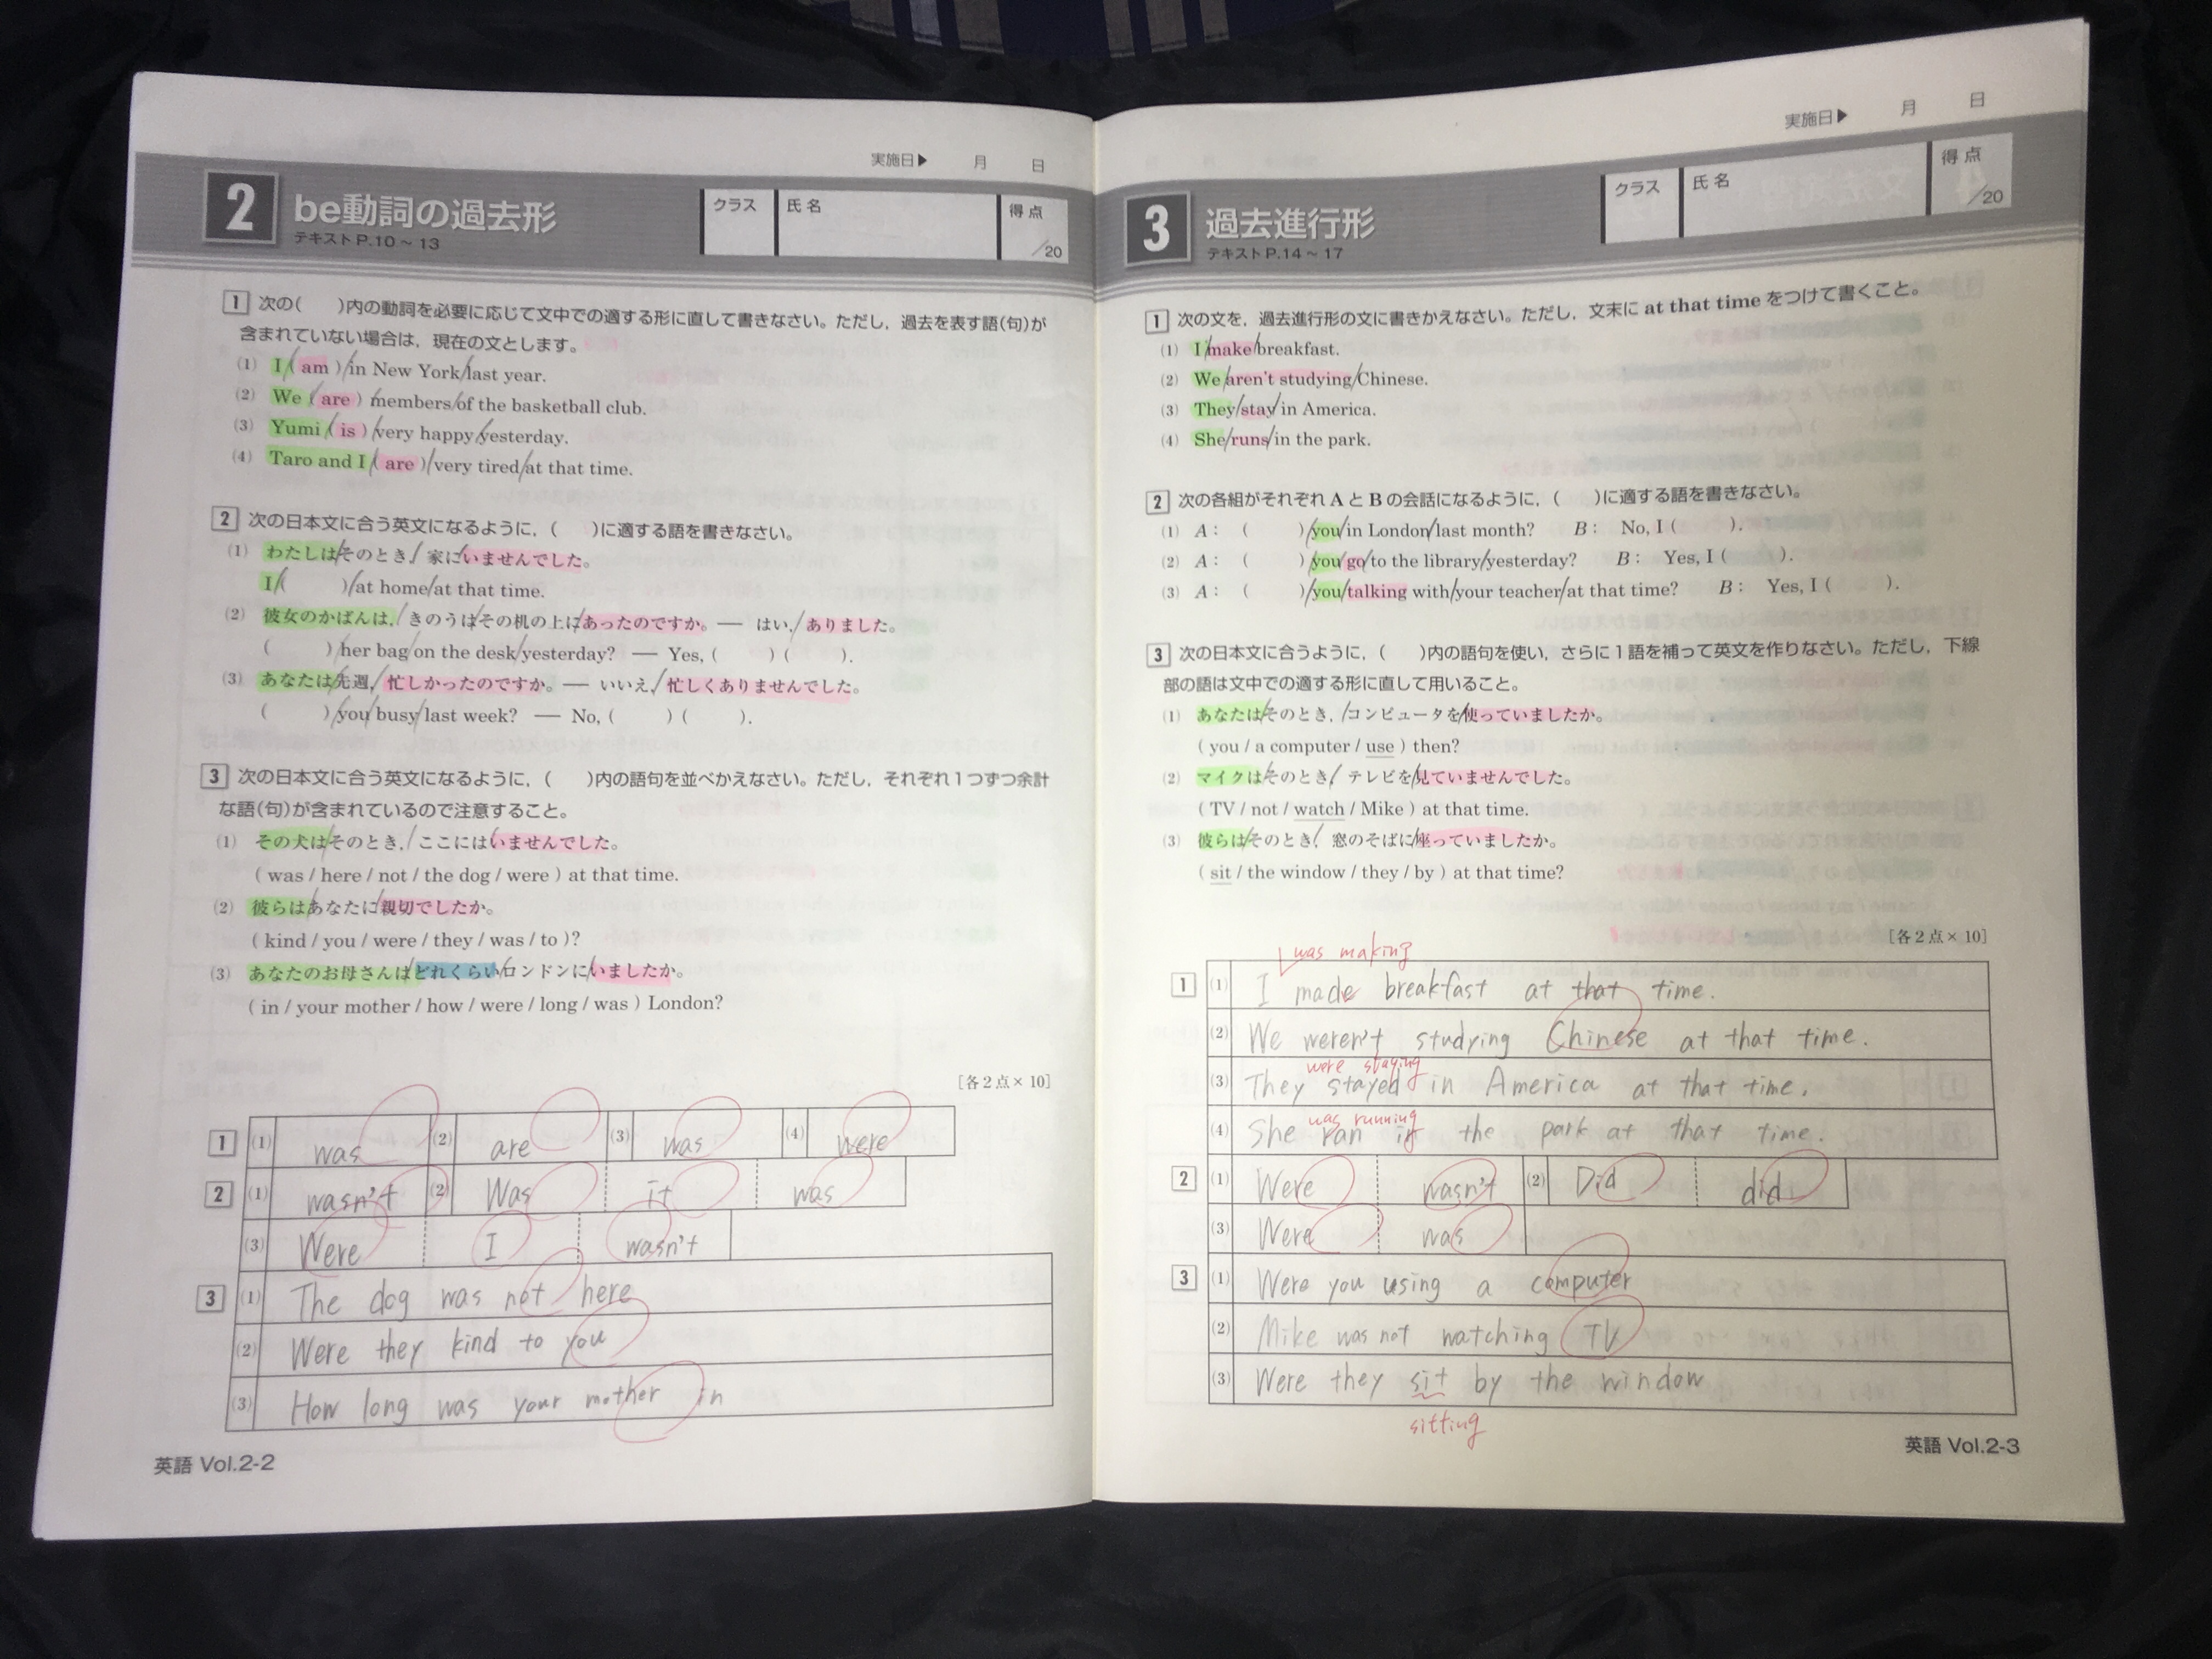 実施日▶ 月 日
2 be動詞の過去形
テキストP.10~13
クラス 氏名 得点 /20
1 次の( )内の動詞を必要に応じて文中での適する形に直して書きなさい。ただし,過去を表す語(句)が
含まれていない場合は,現在の文とします。
(1) I ( am ) in New York last year.
(2) We ( are ) members of the basketball club.
(3) Yumi ( is ) very happy yesterday.
(4) Taro and I ( are ) very tired at that time.
2 次の日本文に合う英文になるように,( )に適する語を書きなさい。
(1) わたしはそのとき,家にいませんでした。
I ( ) at home at that time.
(2) 彼女のかばんは,きのうはその机の上にあったのですか。— はい,ありました。
( ) her bag on the desk yesterday? — Yes, ( ) ( ).
(3) あなたは先週,忙しかったのですか。— いいえ,忙しくありませんでした。
( ) you busy last week? — No, ( ) ( ).
3 次の日本文に合う英文になるように,( )内の語句を並べかえなさい。ただし,それぞれ1つずつ余計
な語(句)が含まれているので注意すること。
(1) その犬はそのとき,ここにはいませんでした。
( was / here / not / the dog / were ) at that time.
(2) 彼らはあなたに親切でしたか。
( kind / you / were / they / was / to )?
(3) あなたのお母さんはどれくらいロンドンにいましたか。
( in / your mother / how / were / long / was ) London?
[各2点×10]
1 (1) was (2) are (3) was (4) were
2 (1) wasn't (2) Was it was
(3) Were I wasn't
3 (1) The dog was not here
(2) Were they kind to you
(3) How long was your mother in
英語 Vol.2-2
実施日▶ 月 日
3 過去進行形
テキストP.14~17
クラス 氏名 得点 /20
1 次の文を,過去進行形の文に書きかえなさい。ただし,文末に at that time をつけて書くこと。
(1) I make breakfast.
(2) We aren't studying Chinese.
(3) They stay in America.
(4) She runs in the park.
2 次の各組がそれぞれAとBの会話になるように,( )に適する語を書きなさい。
(1) A: ( ) you in London last month? B: No, I ( ).
(2) A: ( ) you go to the library yesterday? B: Yes, I ( ).
(3) A: ( ) you talking with your teacher at that time? B: Yes, I ( ).
3 次の日本文に合うように,( )内の語句を使い,さらに1語を補って英文を作りなさい。ただし,下線
部の語は文中での適する形に直して用いること。
(1) あなたはそのとき,コンピュータを使っていましたか。
( you / a computer / use ) then?
(2) マイクはそのとき,テレビを見ていませんでした。
( TV / not / watch / Mike ) at that time.
(3) 彼らはそのとき,窓のそばに座っていましたか。
( sit / the window / they / by ) at that time?
[各2点×10]
was making
1 (1) I made breakfast at that time.
(2) We weren't studying Chinese at that time.
were staying
(3) They stayed in America at that time.
was running
(4) She ran in the park at that time.
2 (1) Were wasn't (2) Did did
(3) Were was
3 (1) Were you using a computer
(2) Mike was not watching TV
(3) Were they sit by the window
sitting
英語 Vol.2-3